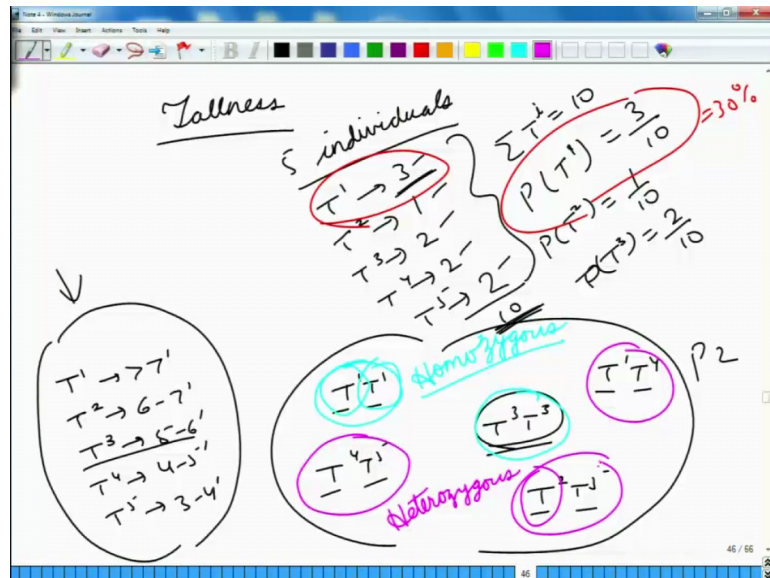 Note 4 - Windows Journal
File Edit View Insert Actions Tools Help
B I
Tallness
5 individuals
T¹ → 3
T² → 1
T³ → 2
T⁴ → 2
T⁵ → 2
10
ΣTⁱ = 10
P(T¹) = 3/10 = 30%
P(T²) = 1/10
P(T³) = 2/10
T¹ → >7'
T² → 6-7'
T³ → 5-6'
T⁴ → 4-5'
T⁵ → 3-4'
Homozygous
T¹T¹
T³T³
T¹T⁴
P2
T⁴T⁵
Heterozygous
T²T⁵
46 / 66
46